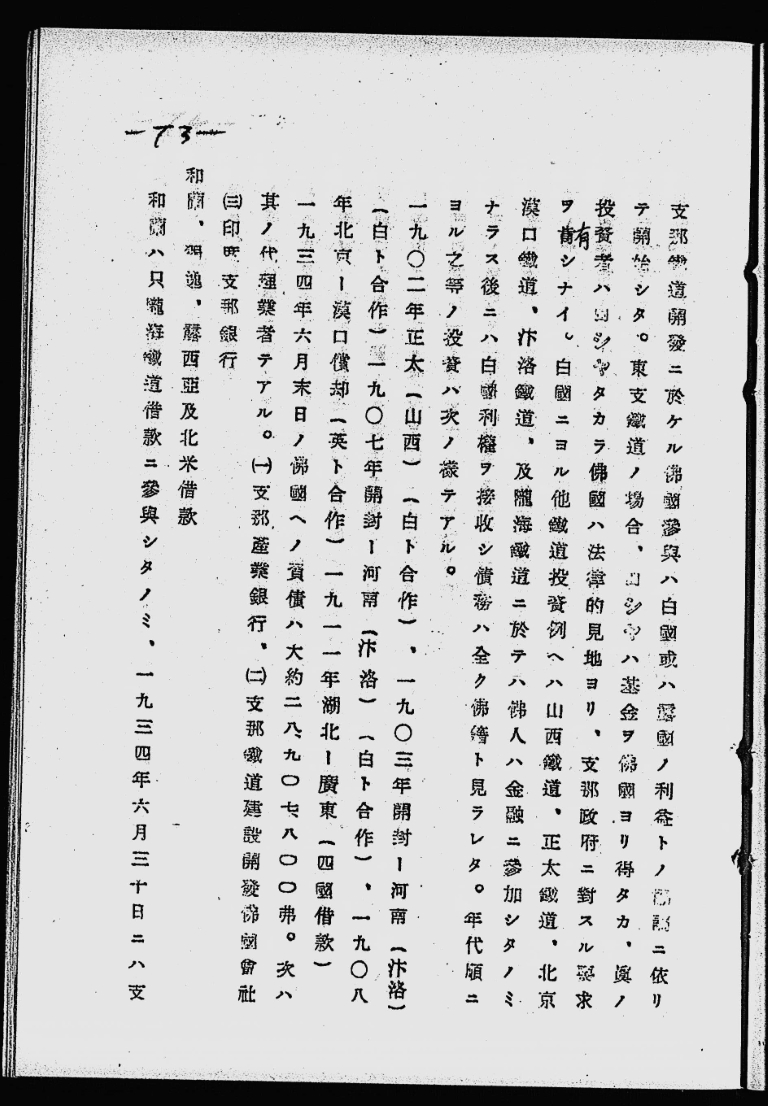 —73—
支那鐵道開發ニ於ケル佛國參與ハ白國或ハ露國ノ利益トノ ニ依リ
テ開始シタ。東支鐵道ノ場合、ロシヤハ基金ヲ佛國ヨリ得タカ、眞ノ
投資者ハロシヤタカラ佛國ハ法律的見地ヨリ、支那政府ニ對スル要求
ヲ有シナイ。白國ニヨル他鐵道投資例ヘハ山西鐵道、正太鐵道、北京
漠口鐵道、汴洛鐵道、及隴海鐵道ニ於テハ佛人ハ金融ニ參加シタノミ
ナラス後ニハ白國利權ヲ接收シ債務ハ全ク佛籍ト見ラレタ。年代順ニ
ヨル之等ノ投資ハ次ノ樣テアル。
一九〇二年正太(山西)(白ト合作)、一九〇三年開封ー河南(汴洛)
(白ト合作)一九〇七年開封ー河南(汴洛)(白ト合作)、一九〇八
年北京ー漠口償却(英ト合作)一九一一年湖北ー廣東(四國借款)
一九三四年六月末日ノ佛國ヘノ負債ハ大約二八、九〇七、八〇〇弗。次ハ
其ノ代理業者テアル。㈠支那産業銀行、㈡支那鐵道建設開發佛國會社
㈢印度支那銀行
和蘭、獨逸、露西亞及北米借款
和蘭ハ只隴海鐵道借款ニ參與シタノミ、一九三四年六月三十日ニハ支